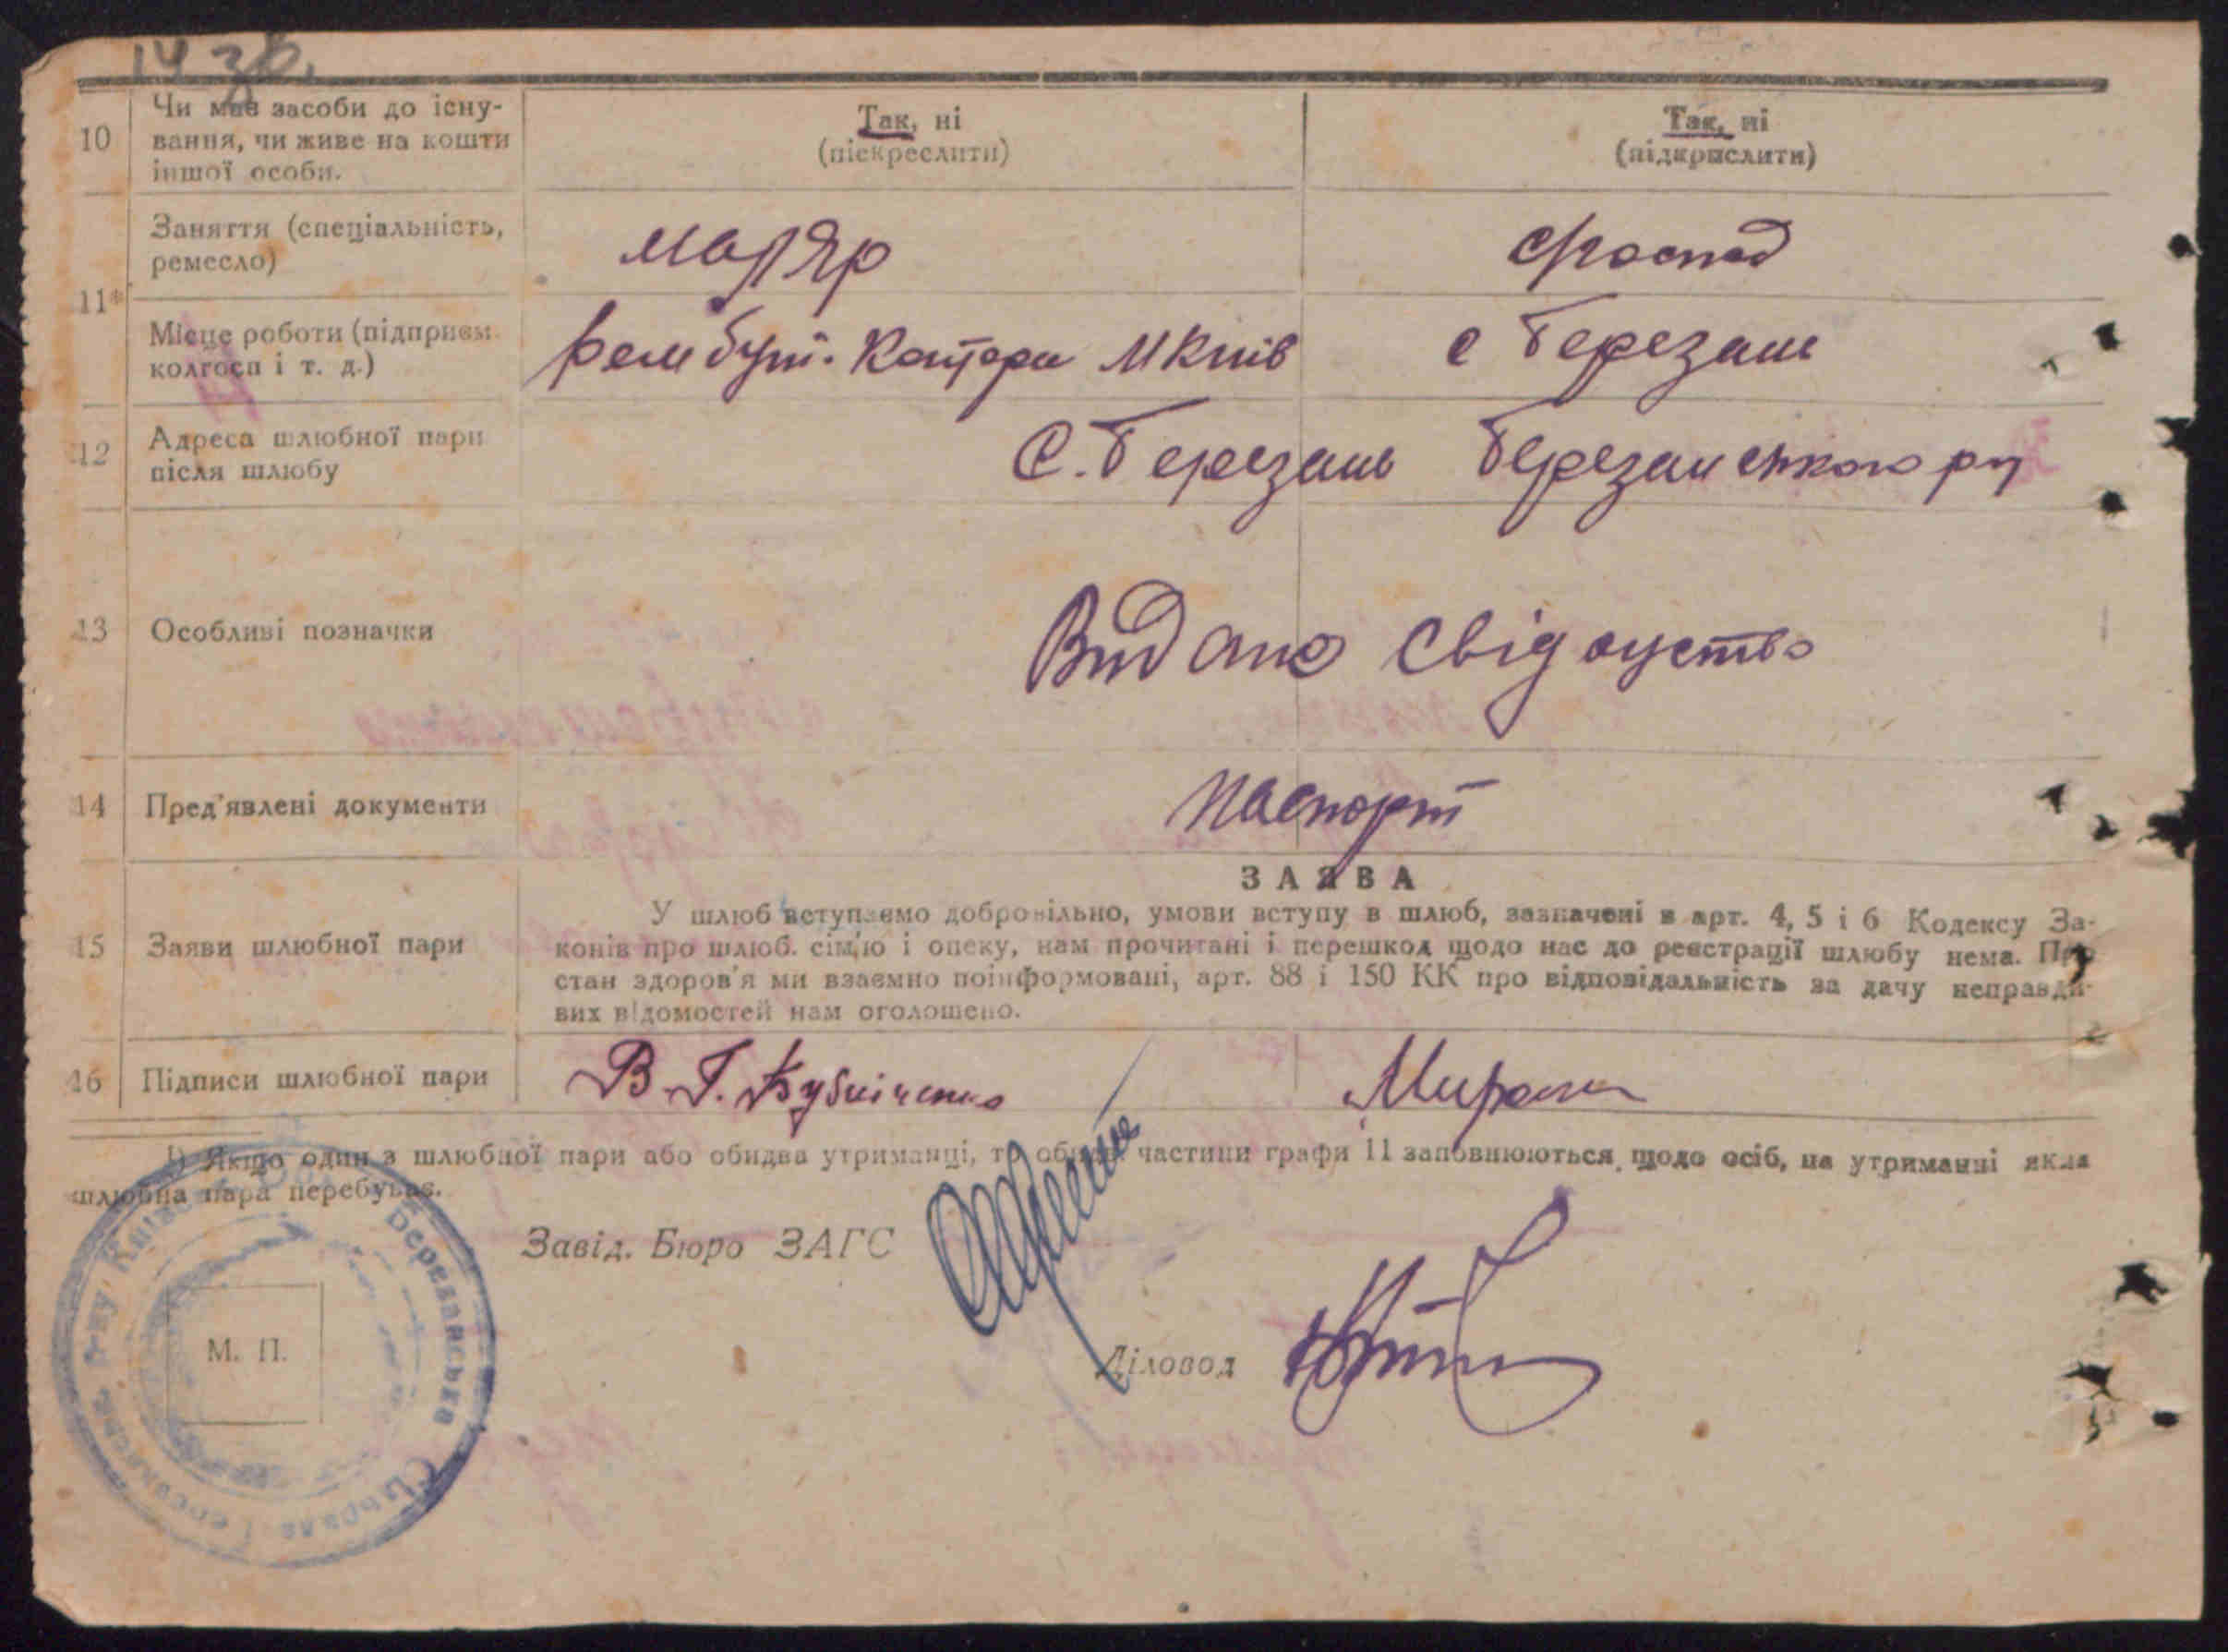 14 зв.
10
Чи має засоби до існу-
вання, чи живе на кошти
іншої особи.
Так, ні
(піскреслити)
Так, ні
(підкрислити)
11*
Заняття (спеціальність,
ремесло)
маляр
Місце роботи (підприєм.
колгосп і т. д.)
Рембуд. Контора М Київ
с Березань
12
Адреса шлюбної пари
після шлюбу
С. Березань Березанського р-у
13
Особливі позначки
Видано свідоцтво
14
Пред'явлені документи
паспорт
15
Заяви шлюбної пари
ЗАЯВА
У шлюб вступаємо добровільно, умови вступу в шлюб, зазначені в арт. 4, 5 і 6 Кодексу За-
конів про шлюб. сім'ю і опеку, нам прочитані і перешкод щодо нас до реєстрації шлюбу нема. Про
стан здоров'я ми взаємно поінформовані, арт. 88 і 150 КК про відповідальність за дачу неправди-
вих відомостей нам оголошено.
16
Підписи шлюбної пари
В. Г.
1) Якщо один з шлюбної пари або обидва утриманці, то обидві частини графи 11 заповнюються щодо осіб, на утриманні яких
шлюбна пара перебуває.
Завід. Бюро ЗАГС
М. П.
Діловод
Березанська